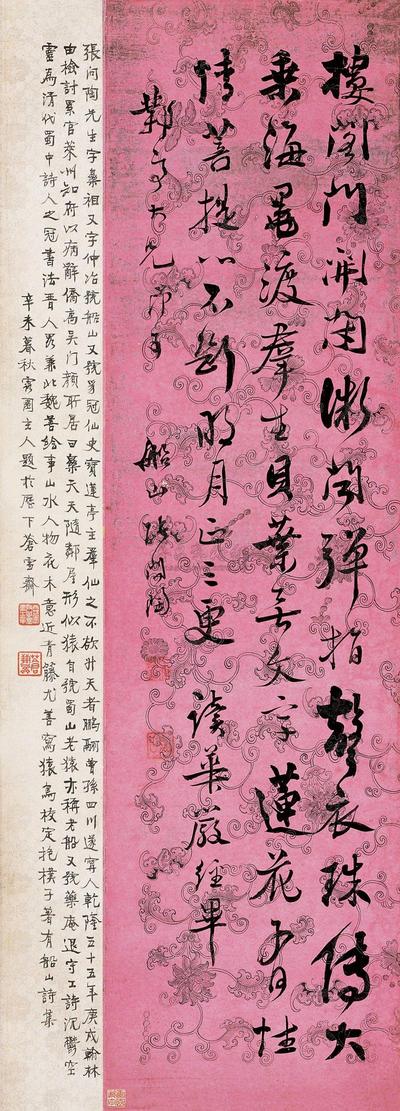 樓閣門開閉微聞彈指聲衣珠傳大
乘海渡羣生貝葉無文字蓮花有性
情菩提心不斷明月正三更 讀華嚴經畢
亭大兄 船山張問陶
張問陶先生字樂祖又字仲冶號船山又號豸冠仙史寶蓮亭主羣仙之不欲升天者鵬翮曾孫四川遂寧人乾隆五十五年庚戌翰林
由檢討累官萊州知府以病辭僑寓吳门顏所居曰樂天天隨鄰屋形似猿自號蜀山老猿亦稱老船又號藥庵退守工詩沉鬱空
靈為清代蜀中詩人之冠書法晉人兼北魏善繪事山水人物花木意近青藤尤善寫猿為校定抱樸子著有船山詩集
辛未暮秋主人題於歷下蒼雪齋